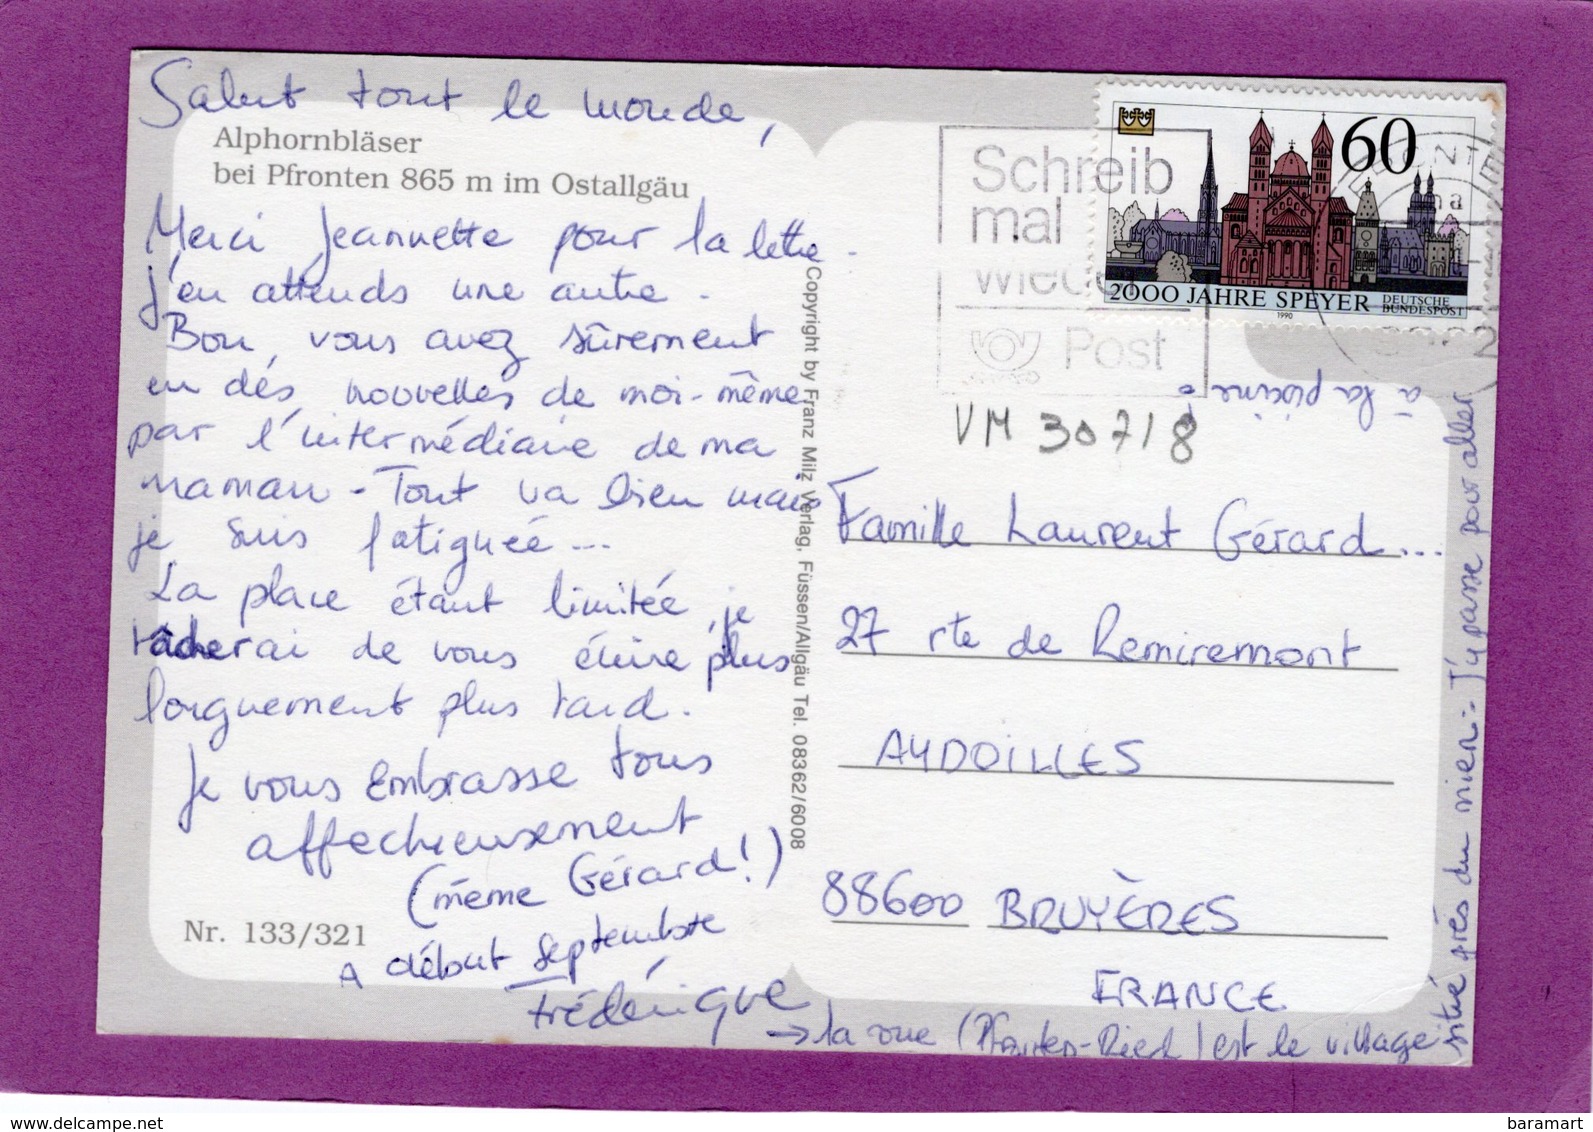 Salut tout le monde,
Alphornbläser
bei Pfronten 865 m im Ostallgäu
Merci Jeannette pour la lettre.
J'en attends une autre.
Bon, vous avez sûrement
eu dés nouvelles de moi-même
par l'intermédiaire de ma
maman - Tout va bien mais
je suis fatiguée...
La place étant limitée, je
tâcherai de vous écrire plus
longuement plus tard.
Je vous embrasse tous
affectueusement
(même Gérard!)
A début septembre
Frédérique
Nr. 133/321
Copyright by Franz Milz Verlag, Füssen/Allgäu Tel. 08362/6008
Schreib
mal
wieder
Post
60
2000 JAHRE SPEYER
DEUTSCHE
BUNDESPOST
1990
VM 30718
Famille Laurent Gérard...
27 rte de Remiremont
AYDOILLES
88600 BRUYÈRES
FRANCE
→ la vue (Pfronten-Ried) est le village
situé près du mien. J'y passe pour aller
à la piscine!
baramart